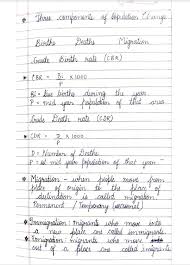 * Three components of Population Change
Births Deaths Migration
Crude Birth rate (CBR)
* CBR = Bi/P x 1000
Bi = live births during the year
P = mid year population of that area
Crude Death rate (CDR)
* CDR = D/P x 1000
D = Number of Deaths
P = mid year population of that year
* Migration - when people move from
place of origin to the place of
destination is called migration.
Permanent / Temporary / seasonal
* Immigration: migrants who move into
a new place are called immigrants.
* Emigration: migrants who move
out of a place are called emigrants